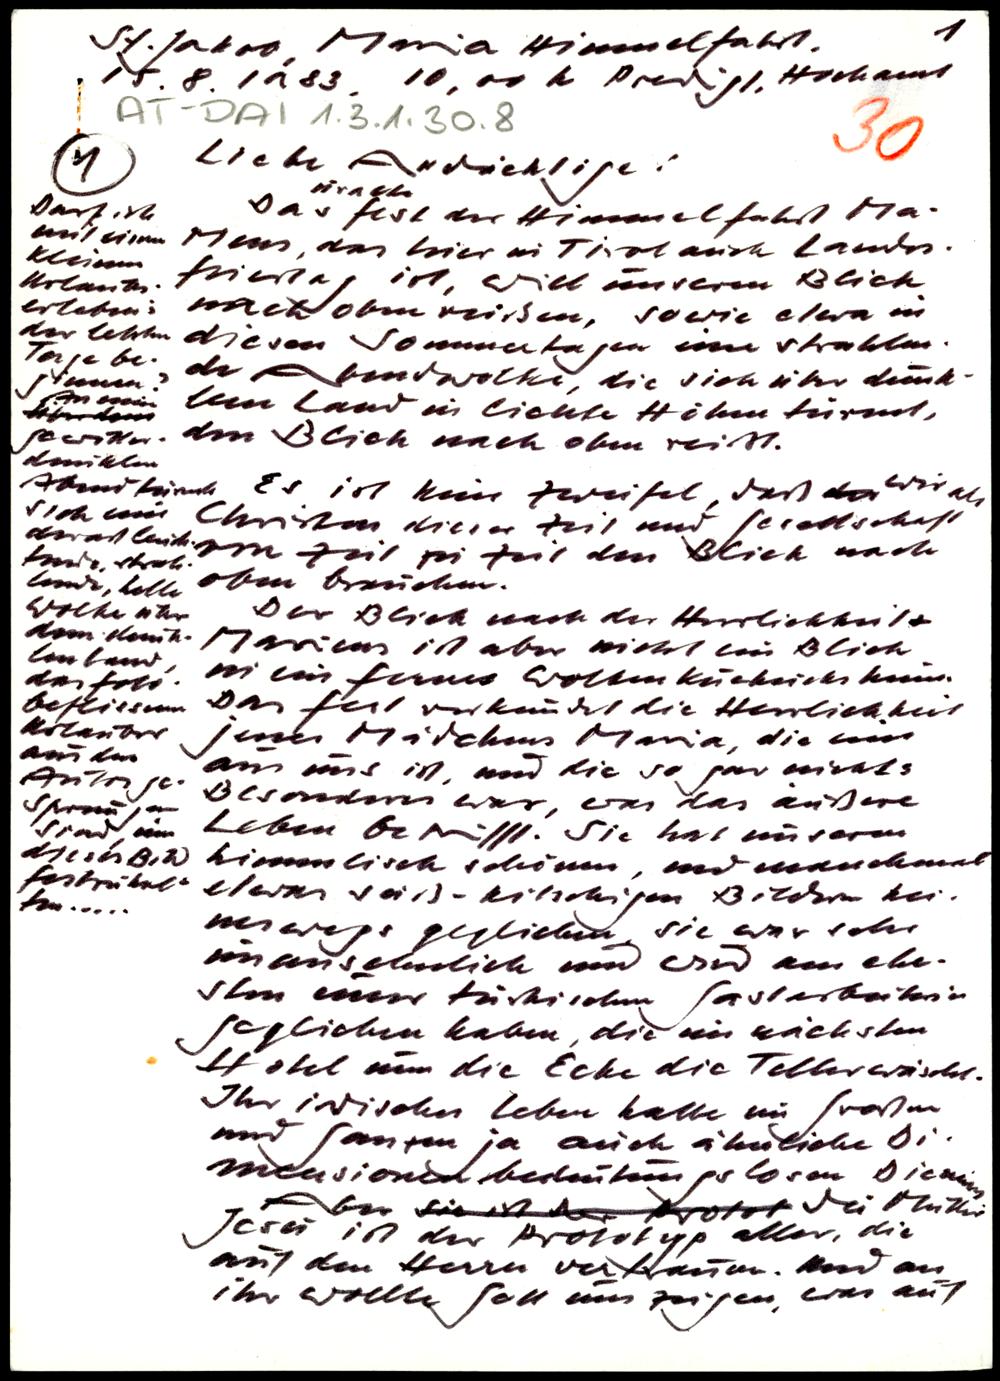 1
St. Jakob, Maria Himmelfahrt.
15. 8. 1983, 10,00 h Predigt, Hochamt
AT-DAI 1.3.1.30.8
30
1
Liebe Andächtige!
Darf ich
mit einem
kleinen
Urlaubs-
erlebnis
der letzten
Tage be-
ginnen?
An einem
gewitter-
dunklen
Abend türmte
sich eine
derart leuch-
tende, strah-
lende, helle
Wolke über
dem dunk-
len Land,
das foto-
beflissene
Urlauber
aus den
Autos ge-
sprungen
sind, um
dieses Bild
festzuhal-
ten.....
Das Fest der Himmelfahrt Ma-
riens, das hier in Tirol auch Landes-
feiertag ist, will unseren Blick
nach oben reißen, so wie etwa in
diesen Sommertagen eine strahlen-
de Abendwolke, die sich über dunk-
lem Land in lichte Höhen türmt,
den Blick nach oben reißt.
Es ist kein Zweifel, daß wir als
Christen dieser Zeit und Gesellschaft
von Zeit zu Zeit den Blick nach
oben brauchen.
Der Blick nach der Herrlichkeit
Mariens ist aber nicht ein Blick
in ein fernes Wolkenkuckucksheim.
Das Fest verkündet die Herrlichkeit
jenes Mädchens Maria, die eine
aus uns ist, und die so gar nichts
Besonderes war, was das äußere
Leben betrifft. Sie hat unseren
himmlisch schönen, und manchmal
etwas süß-kitschigen Bildern kei-
neswegs geglichen, sie war sehr
unansehnlich und wird am ehe-
sten einer türkischen Gastarbeiterin
geglichen haben, die im nächsten
Hotel um die Ecke die Teller wäscht.
Ihr irdisches Leben hatte im Großen
und Ganzen ja auch ähnliche Di-
mensionen bedeutungslosen Dienens
Aber sie ist der Protot die Mutter
Jesu ist der Prototyp aller, die
auf den Herrn vertrauen. Und an
ihr wollte Gott uns zeigen, was auf